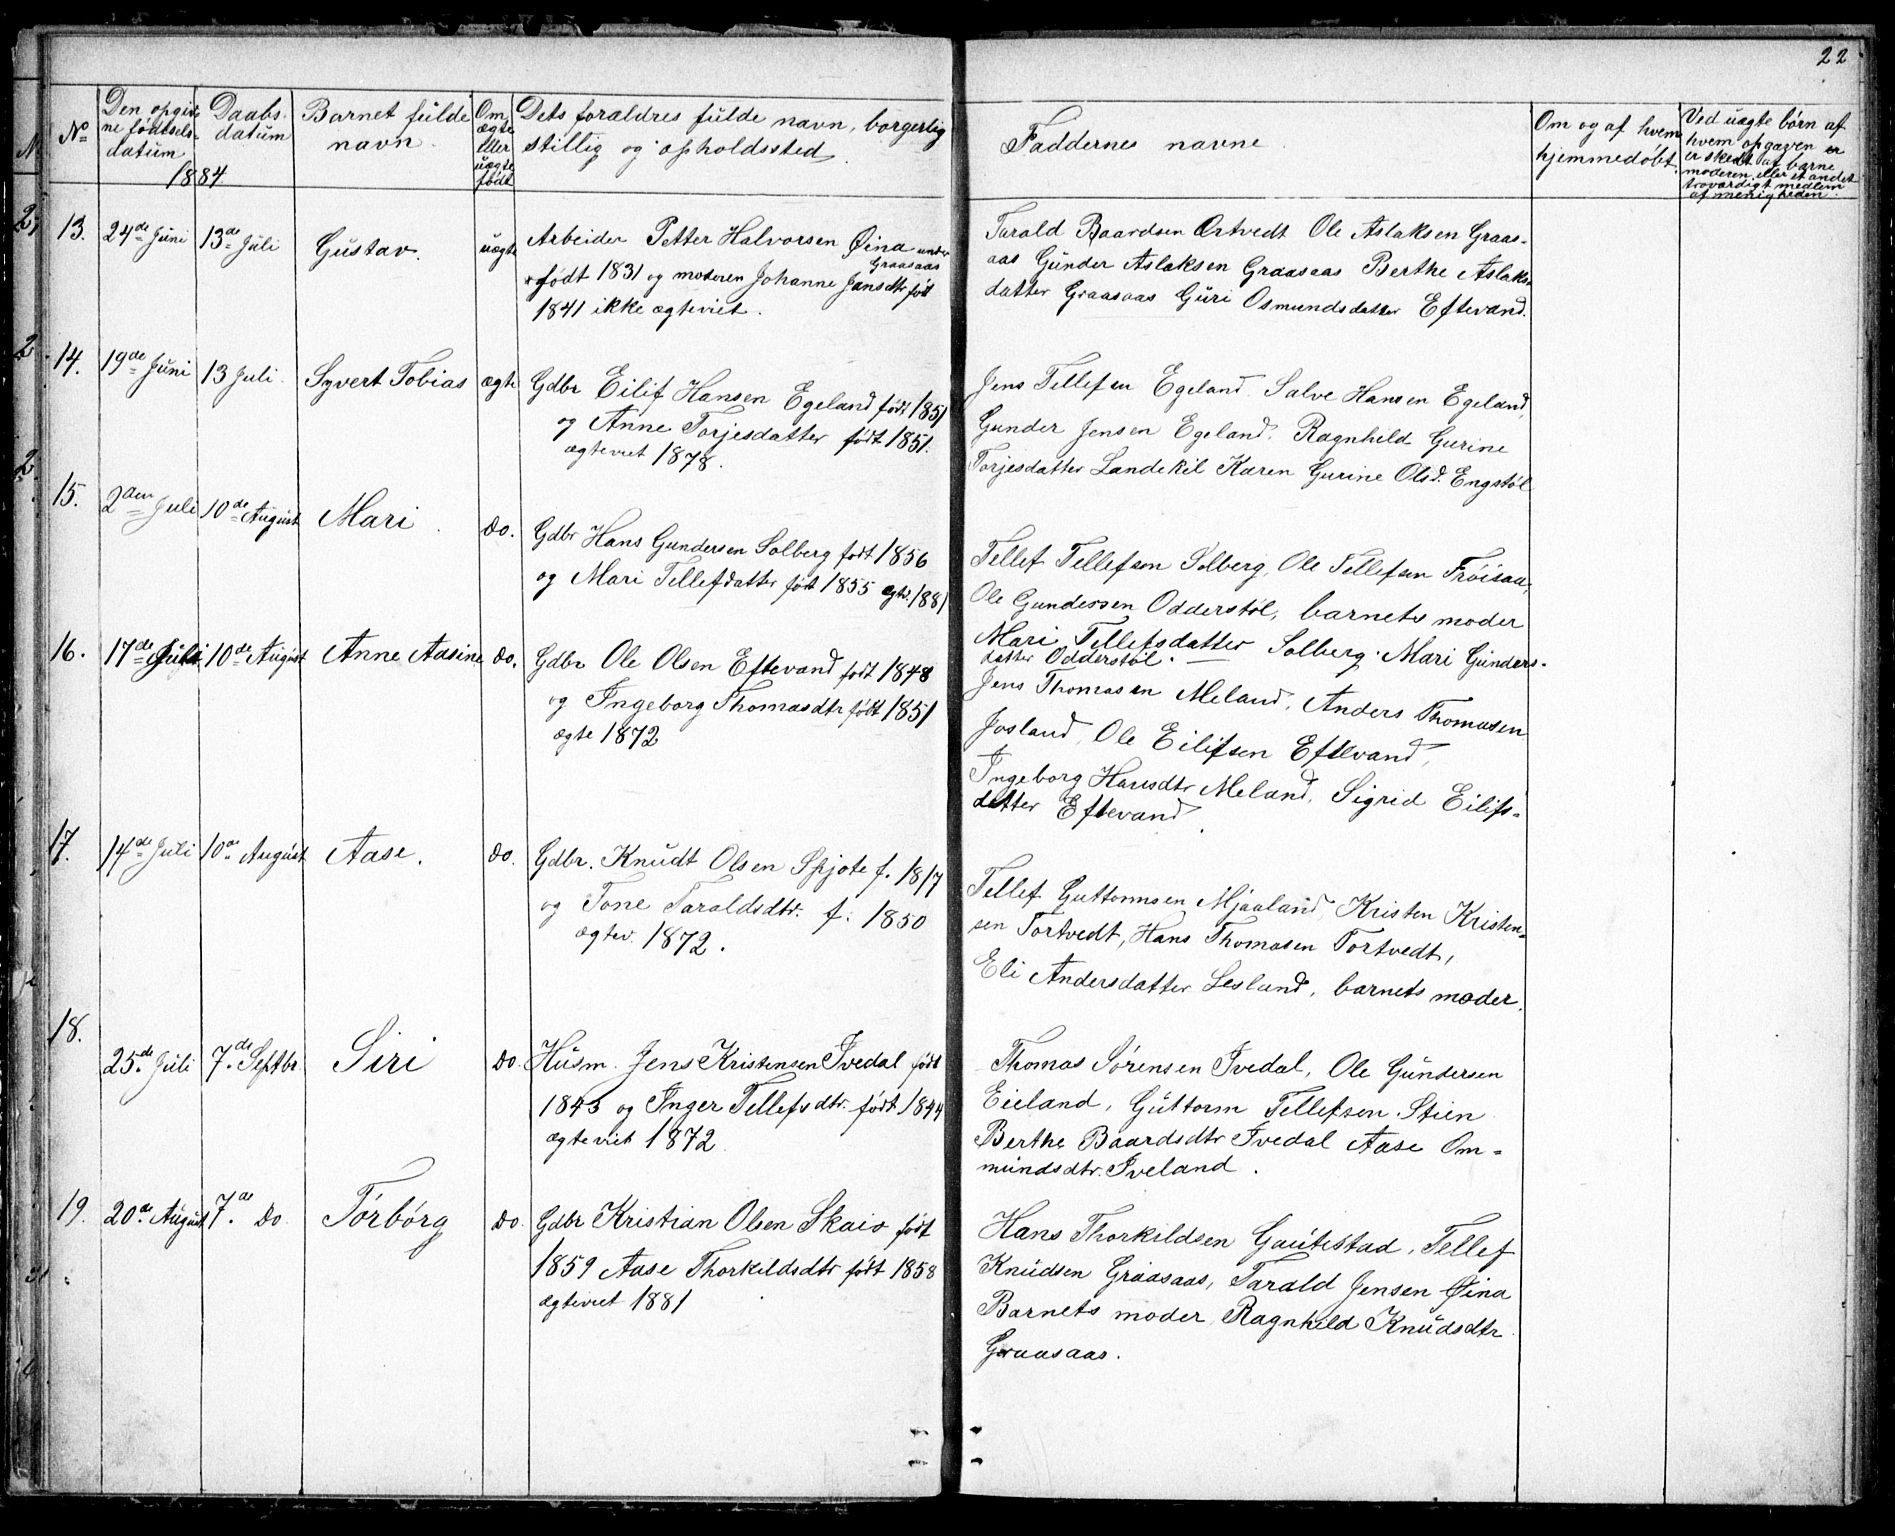 22
No
Den opgiv-
ne fødtsels-
datum
1884
Daabs-
datum
Barnet fulde
navn.
Om
ægte
eller
uægte
født
Dets forældres fulde navn, borgerlig
stillig og opholdssted.
Faddernes navne.
Om og af hvem
hjemmedøbt.
Ved uægte børn af
hvem opgaven er
er skedt af barne
moderen eller et andet
troværdigt medlem
af menigheden.
13. 24de Juni 13de Juli Gustav. uægte
Arbeider Petter Halvorsen Øina under
Graasaas
født 1831 og moderen Johanne Jansdtr født
1841 ikke ægteviet.
Tarald Baardsen Ortvedt Ole Aslaksen Graas-
aas Gunder Aslaksen Graasaas Berthe Aslaks-
datter Graasaas Guri Osmundsdatter Eftevand.
14. 19de Juni 13 Juli. Syvert Tobias ægte
Gdbr Eilif Hansen Egeland født 1851
og Anne Torjesdatter født 1851.
ægteviet 1878.
Jens Tellefsen Egeland. Salve Hansen Egeland,
Gunder Jensen Egeland. Ragnhild Gurine
Torjesdatter Landekil Karen Gurine Olsd. Engstøl
15. 2den Juli 10de August Mari do.
Gdbr Hans Gundersen Solberg født 1856
og Mari Tellefdatter født 1855 ægtv. 1881
Tellef Tellefsen Solberg, Ole Tellefsen Frøisaa,
Ole Gundersen Odderstøl, barnets moder
Mari Tellefsdatter Solberg. Mari Gunders-
datter Odderstøl.
16. 17de Juli 10de August Anne Aasine do.
Gdbr Ole Olsen Eftevand født 1848
og Ingeborg Thomasdtr født 1851
ægte 1872
Jens Thomasen Meland, Anders Thomasen
Josland, Ole Eilifsen Eftevand,
Ingeborg Hansdtr Meland, Sigrid Eilifs-
datter Eftevand
17. 14de Juli 10de August Aase. do.
Gdbr. Knudt Olsen Spjote f. 1817
og Tone Taraldsdtr. f. 1850
ægtev. 1872.
Tellef Guttormsen Mjaaland, Kristen Kristen-
sen Tortvedt, Hans Thomasen Tortvedt,
Eli Andersdatter Lesland, barnets moder.
18. 25de Juli 7de Septbr Siri do.
Husm. Jens Kristensen Ivedal født
1843 og Inger Tellefsdtr. født 1844
ægteviet 1872.
Thomas Sørensen Ivedal, Ole Gundersen
Eieland, Guttorm Tellefsen Stien
Berthe Baardsdtr Ivedal Aase Om-
mundsdtr. Iveland.
19. 20de August 7de do Torborg do.
Gdbr Kristian Olsen Skaio født
1859 Aase Thorkildsdtr født 1858
ægteviet 1881
Hans Thorkildsen Gautestad, Tellef
Knudsen Graasaas, Tarald Jensen Øina
Barnets moder, Ragnhild Knudsdtr
Graasaas.